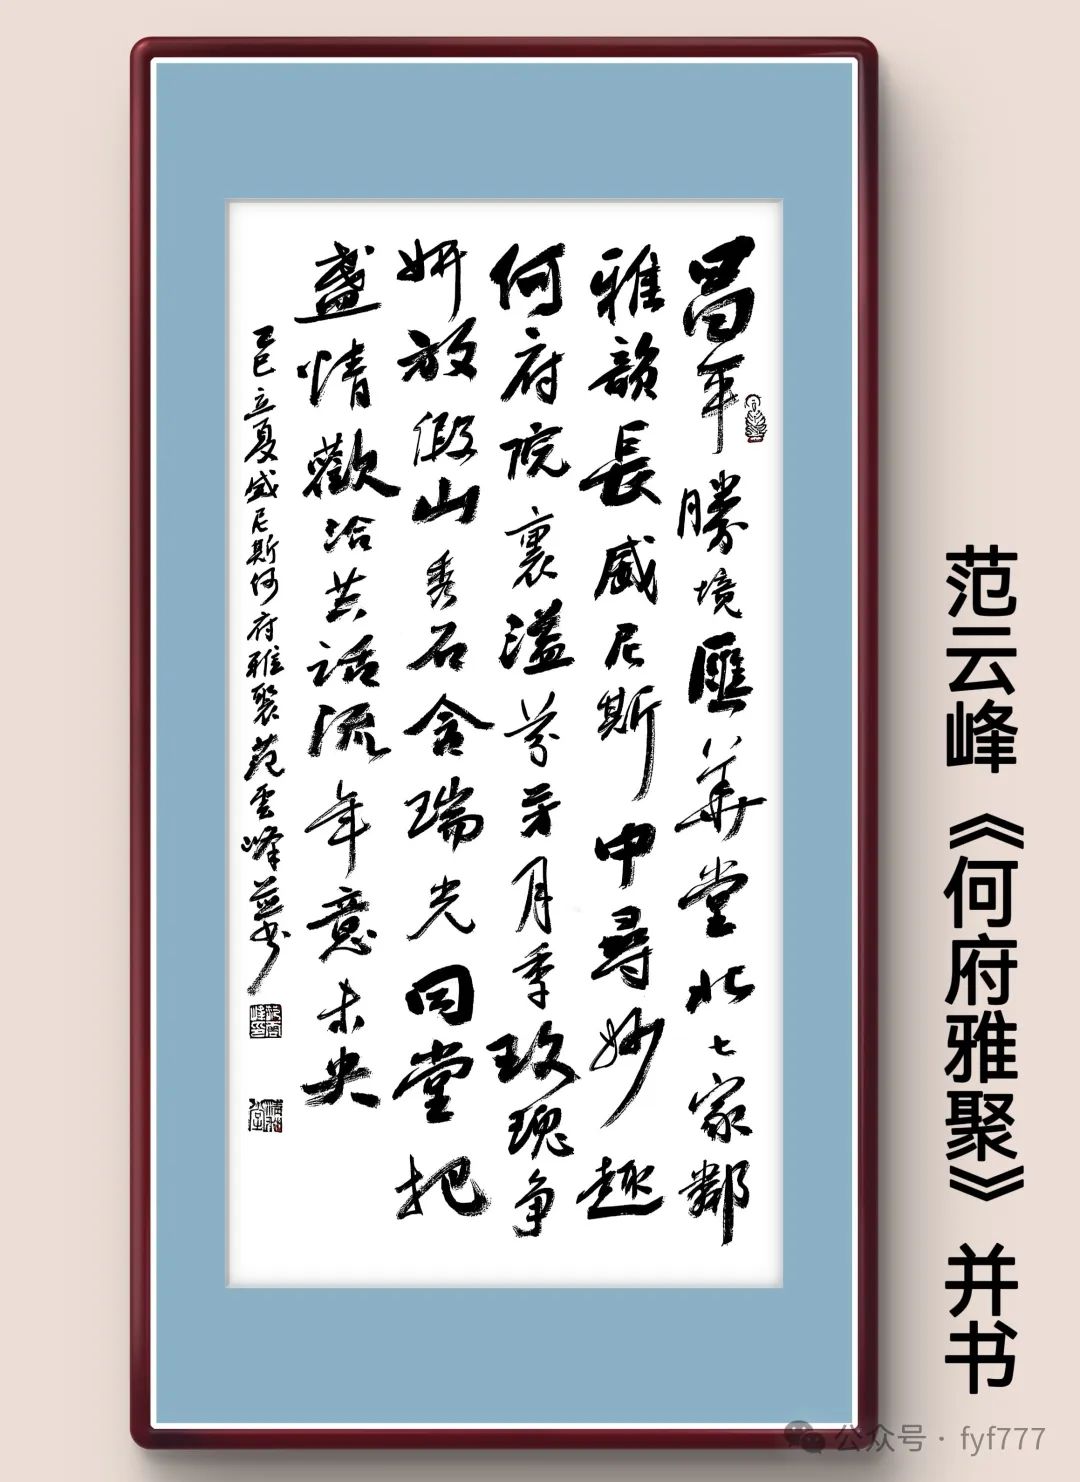 昌平勝境匯華堂北七家鄰
雅韻長威尼斯中尋妙趣
何府院裏溢芬芳月季玫瑰争
妍放假山秀石含瑞光同堂把
盞情歡洽共話流年意未央
乙巳立夏威尼斯何府雅聚范雲峰並书
范云峰《何府雅聚》并书
公众号·fyf777